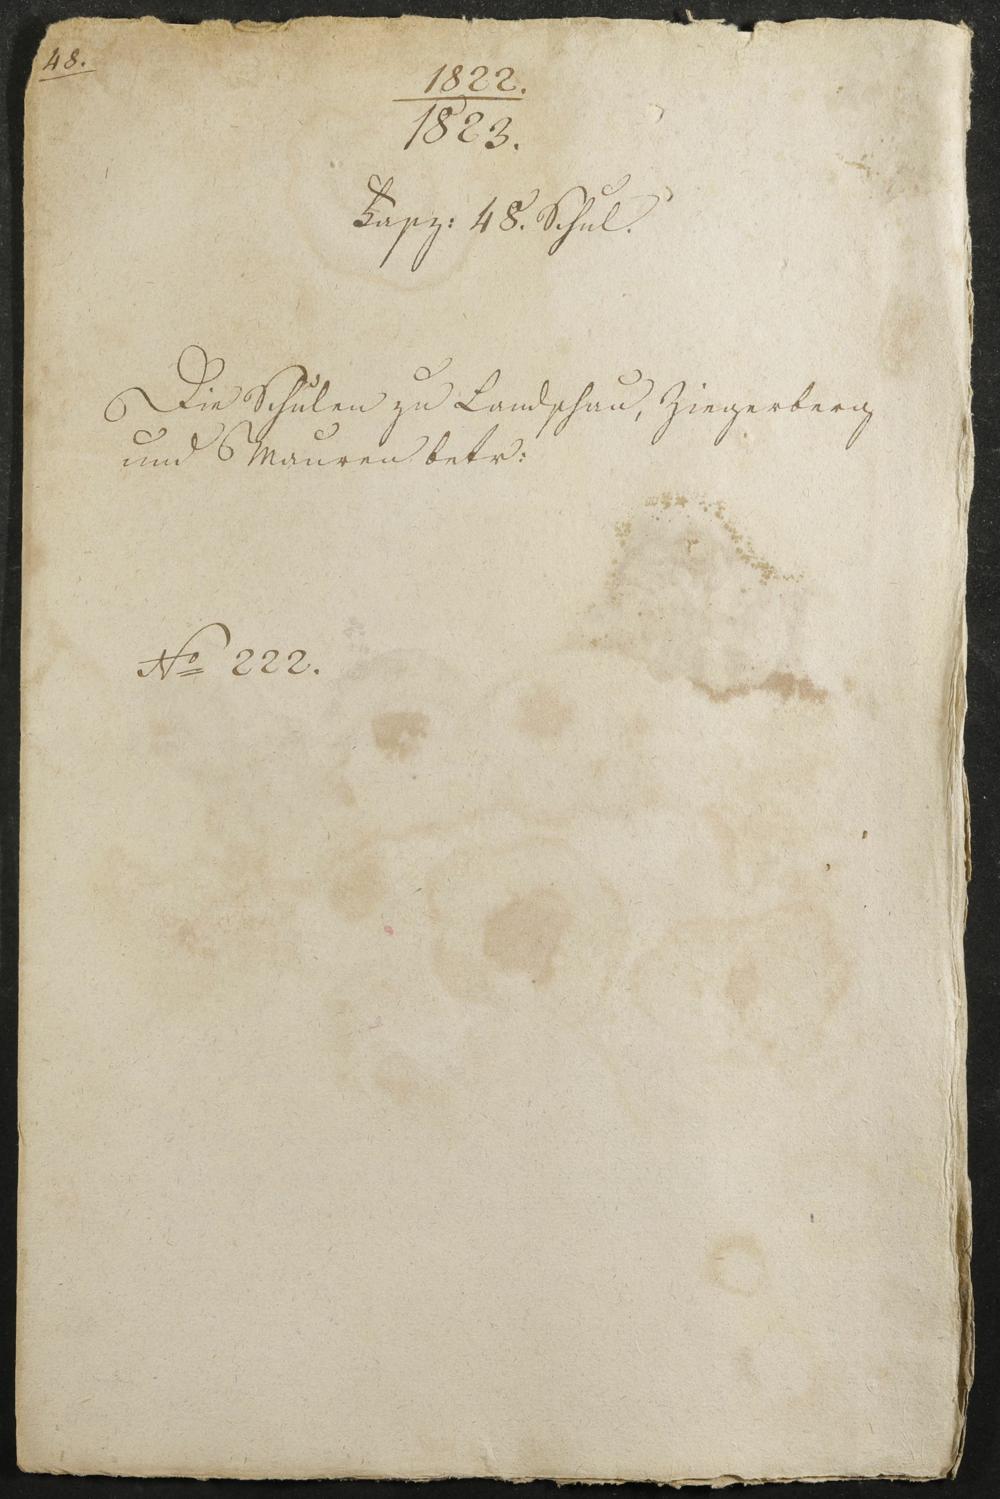 48.
1822.
1823.
Fasz: 48. Schul.
Die Schulen zu Landschau, Ziegerberg
und Mauren betr:
No 222.